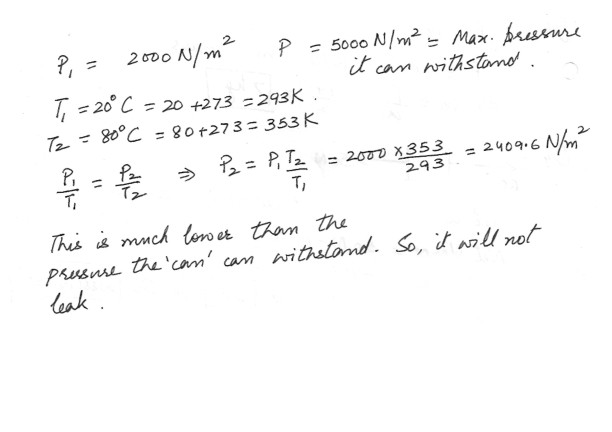 P₁ = 2000 N/m² P = 5000 N/m² = Max. pressure
it can withstand.
T₁ = 20°C = 20 + 273 = 293K.
T₂ = 80°C = 80 + 273 = 353K
P₁/T₁ = P₂/T₂ ⇒ P₂ = P₁T₂/T₁ = 2000 × 353/293 = 2409.6 N/m²
This is much lower than the
pressure the 'can' can withstand. So, it will not
leak.